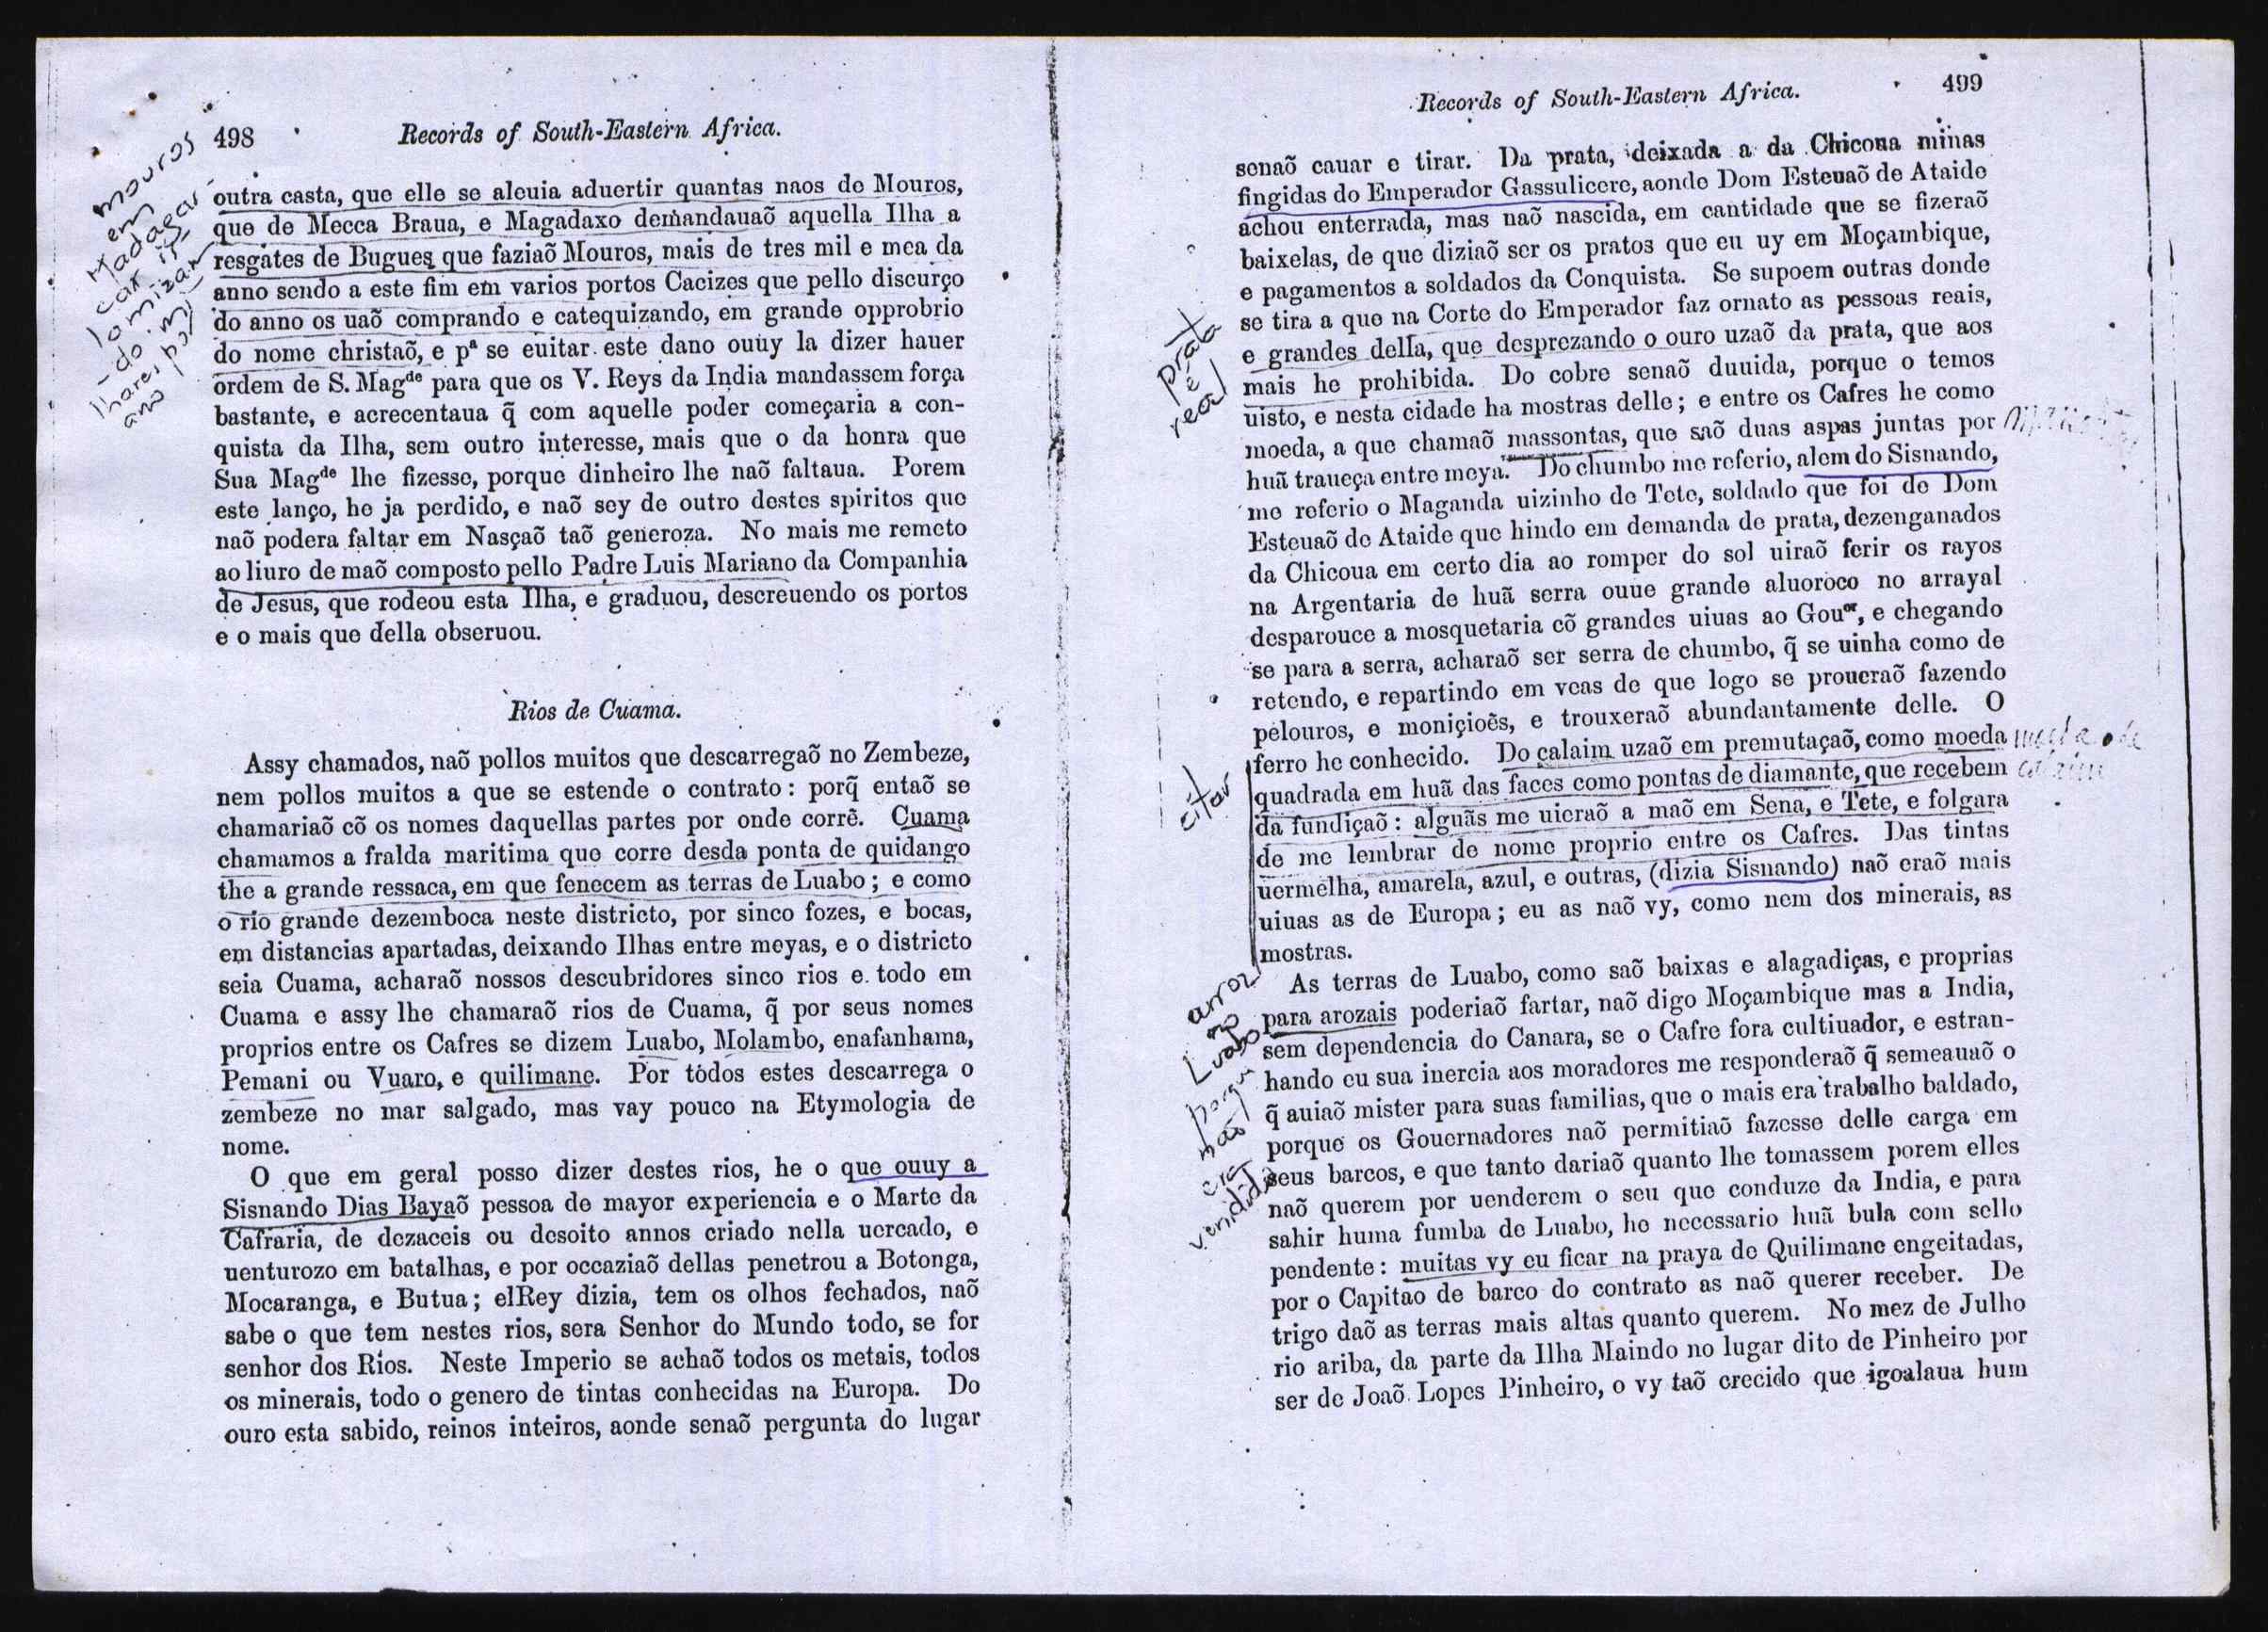 498 Records of South-Eastern Africa.
outra casta, que elle se aleuia aduertir quantas naos de Mouros,
que de Mecca Braua, e Magadaxo demandauaõ aquella Ilha a
resgates de Bugues que faziaõ Mouros, mais de tres mil e mea da
anno sendo a este fim em varios portos Cacizes que pello discurço
do anno os uaõ comprando e catequizando, em grande opprobrio
do nome christaõ, e pª se euitar este dano ouuy la dizer hauer
ordem de S. Magᵈᵉ para que os V. Reys da India mandassem força
bastante, e acrecentaua q̃ com aquelle poder começaria a con-
quista da Ilha, sem outro interesse, mais que o da honra que
Sua Magᵈᵉ lhe fizesse, porque dinheiro lhe naõ faltaua. Porem
este lanço, he ja perdido, e naõ sey de outro destes spiritos que
naõ podera faltar em Nasçaõ taõ generoza. No mais me remeto
ao liuro de maõ composto pello Padre Luis Mariano da Companhia
de Jesus, que rodeou esta Ilha, e graduou, descreuendo os portos
e o mais que della obseruou.
Rios de Cuama.
Assy chamados, naõ pollos muitos que descarregaõ no Zembeze,
nem pollos muitos a que se estende o contrato : porq̃ entaõ se
chamariaõ cõ os nomes daquellas partes por onde corrẽ. Cuama
chamamos a fralda maritima que corre desda ponta de quidango
the a grande ressaca, em que fenecem as terras de Luabo ; e como
o rio grande dezemboca neste districto, por sinco fozes, e bocas,
em distancias apartadas, deixando Ilhas entre meyas, e o districto
seia Cuama, acharaõ nossos descubridores sinco rios e todo em
Cuama e assy lhe chamaraõ rios de Cuama, q̃ por seus nomes
proprios entre os Cafres se dizem Luabo, Molambo, enafanhama,
Pemani ou Vuaro, e quilimane. Por tódos estes descarrega o
zembeze no mar salgado, mas vay pouco na Etymologia de
nome.
O que em geral posso dizer destes rios, he o que ouuy a
Sisnando Dias Bayaõ pessoa de mayor experiencia e o Marte da
Cafraria, de dezaceis ou desoito annos criado nella uercado, e
uenturozo em batalhas, e por occaziaõ dellas penetrou a Botonga,
Mocaranga, e Butua ; elRey dizia, tem os olhos fechados, naõ
sabe o que tem nestes rios, sera Senhor do Mundo todo, se for
senhor dos Rios. Neste Imperio se achaõ todos os metais, todos
os minerais, todo o genero de tintas conhecidas na Europa. Do
ouro esta sabido, reinos inteiros, aonde senaõ pergunta do lugar
mouros
em
Madagas-
car is-
lomizan
-do mi
lhares por
ano
Records of South-Eastern Africa. 499
senaõ cauar e tirar. Da prata, deixada a da Chicoua minas
fingidas do Emperador Gassulicere, aonde Dom Esteuaõ de Ataide
achou enterrada, mas naõ nascida, em cantidade que se fizeraõ
baixelas, de que diziaõ ser os pratos que eu uy em Moçambique,
e pagamentos a soldados da Conquista. Se supoem outras donde
se tira a que na Corte do Emperador faz ornato as pessoas reais,
e grandes della, que desprezando o ouro uzaõ da prata, que aos
mais he prohibida. Do cobre senaõ duuida, porque o temos
uisto, e nesta cidade ha mostras delle ; e entre os Cafres he como
moeda, a que chamaõ massontas, que saõ duas aspas juntas por
huã traueça entre meya. Do chumbo me referio, alem do Sisnando,
me referio o Maganda uizinho de Tete, soldado que foi de Dom
Esteuaõ de Ataide que hindo em demanda de prata, dezenganados
da Chicoua em certo dia ao romper do sol uiraõ ferir os rayos
na Argentaria de huã serra ouue grande aluoroco no arrayal
desparouce a mosquetaria cõ grandes uiuas ao Gouᵒʳ, e chegando
se para a serra, acharaõ ser serra de chumbo, q̃ se uinha como de
retendo, e repartindo em veas de que logo se proueraõ fazendo
pelouros, e moniçioẽs, e trouxeraõ abundantamente delle. O
ferro he conhecido. Do calaim uzaõ em premutaçaõ, como moeda
quadrada em huã das faces como pontas de diamante, que recebem
da fundiçaõ : alguãs me uieraõ a maõ em Sena, e Tete, e folgara
de me lembrar de nome proprio entre os Cafres. Das tintas
uermelha, amarela, azul, e outras, (dizia Sisnando) naõ eraõ mais
uiuas as de Europa ; eu as naõ vy, como nem dos minerais, as
mostras.
As terras de Luabo, como saõ baixas e alagadiças, e proprias
para arozais poderiaõ fartar, naõ digo Moçambique mas a India,
sem dependencia do Canara, se o Cafre fora cultiuador, e estran-
hando eu sua inercia aos moradores me responderaõ q̃ semeauaõ o
q̃ auiaõ mister para suas familias, que o mais era trabalho baldado,
porque os Gouernadores naõ permitiaõ fazesse delle carga em
seus barcos, e que tanto dariaõ quanto lhe tomassem porem elles
naõ querem por uenderem o seu que conduze da India, e para
sahir huma fumba de Luabo, he necessario huã bula com sello
pendente : muitas vy eu ficar na praya de Quilimane engeitadas,
por o Capitaõ de barco do contrato as naõ querer receber. De
trigo daõ as terras mais altas quanto querem. No mez de Julho
rio ariba, da parte da Ilha Maindo no lugar dito de Pinheiro por
ser de Joaõ Lopes Pinheiro, o vy taõ crecido que igoalaua hum
prata
é
real
citar
arroz
no
Luabo
porque
não
era
vendido